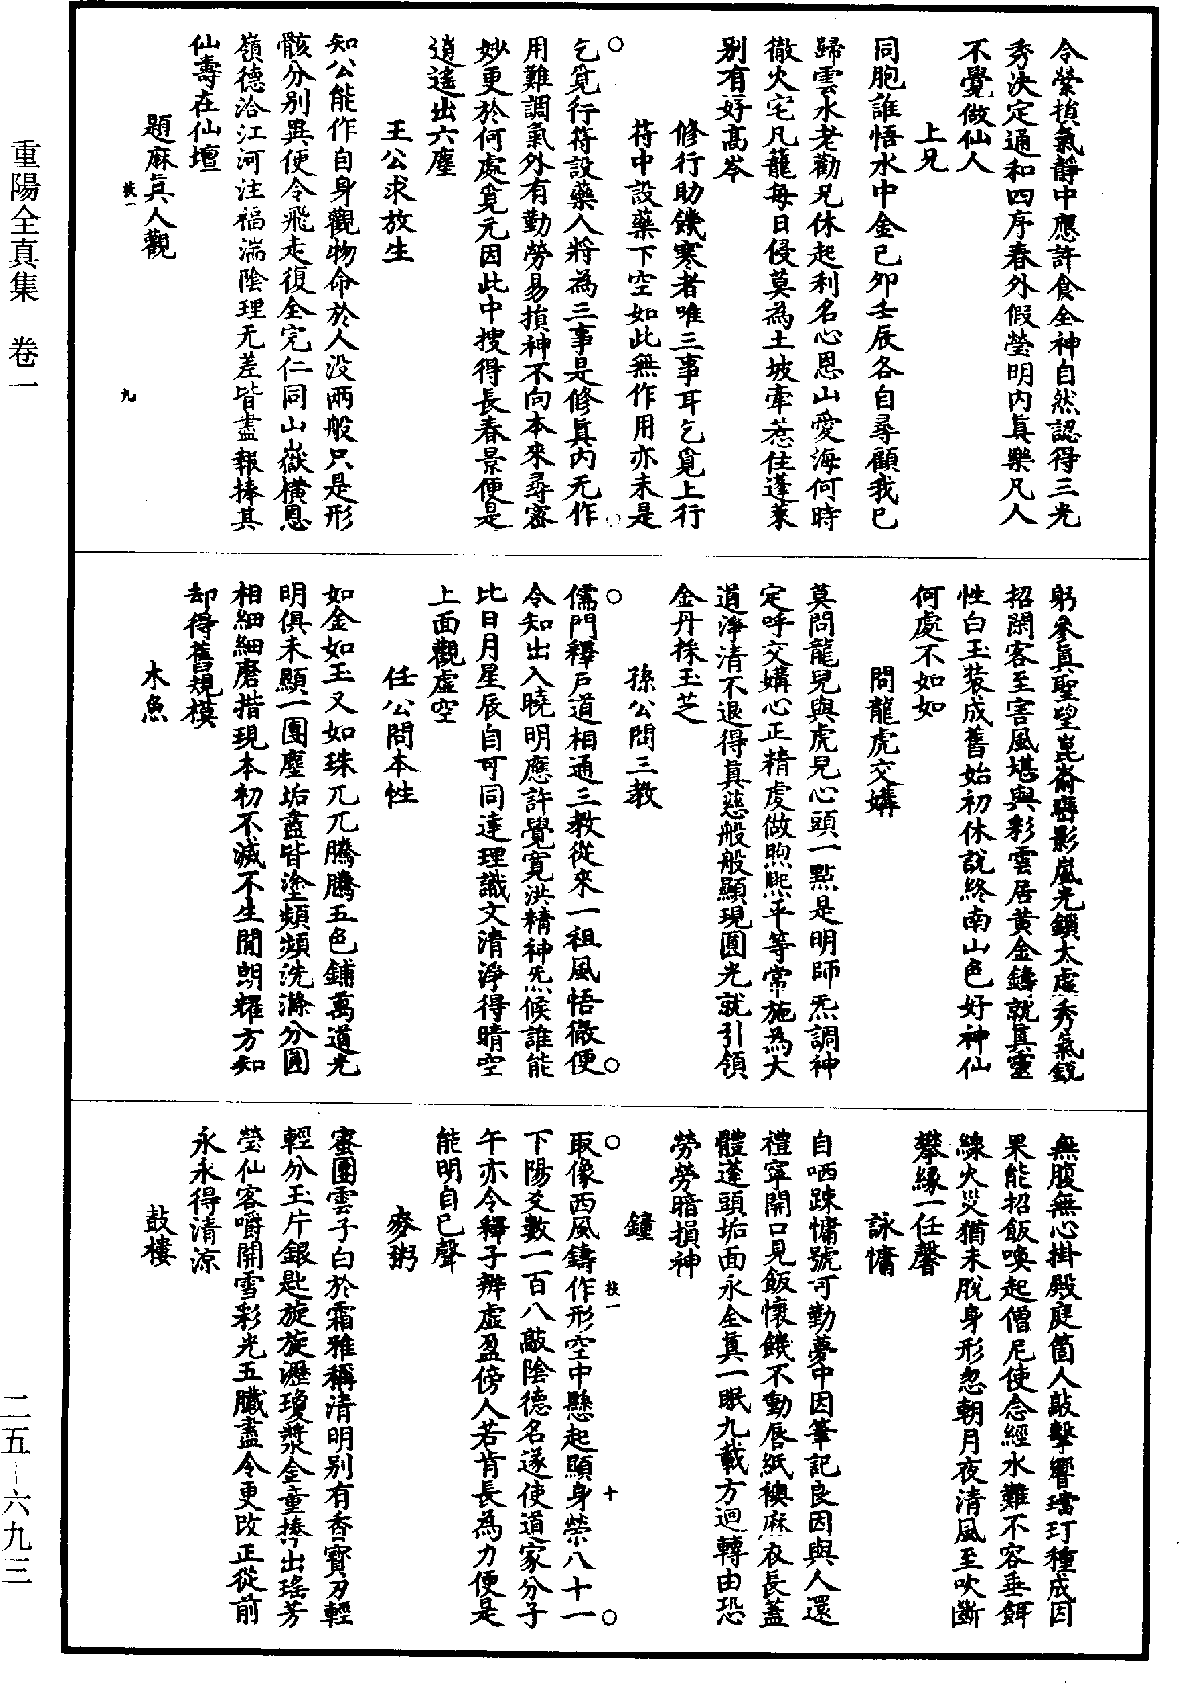 重陽全真集　卷一
二五—六九三
令縈損氣靜中應許食全神自然認得三光
秀決定通和四序春外假瑩明內真樂凡人
不覺做仙人
上兄
同胞誰悟水中金己卯壬辰各自尋顧我已
歸雲水老勸兄休起利名心恩山愛海何時
徹火宅凡籠每日侵莫為土坡牽惹住蓬萊
別有好高岑
修行助饑寒者唯三事耳乞覓上行
符中設藥下空如此無作用亦未是
乞覓行符設藥人將為三事是修真內无作
用難調氣外有勤勞易損神不向本來尋密
妙更於何處覓元因此中搜得長春景便是
逍遙出六塵
王公求放生
知公能作自身觀物命於人没兩般只是形
骸分別異使令飛走復全完仁同山嶽橫恩
嶺德洽江河注福湍陰理无差皆盡報捧其
仙壽在仙壇
題麻真人觀
枝一
九
躬參真聖望崑崙巒影嵐光鎖太虛秀氣鋭
招閑客至害風堪與彩雲居黃金鑄就真靈
性白玉裝成舊始初休說終南山色好神仙
何處不如如
問龍虎交媾
莫問龍兒與虎兒心頭一點是明師炁調神
定呼交媾心正精虔做煦熙平等常施為大
道淨清不退得真慈般般顯現圓光就引領
金丹採玉芝
孫公問三教
儒門釋戶道相通三教從來一祖風悟徹便
令知出入曉明應許覺寬洪精神炁候誰能
比日月星辰自可同達理識文清淨得晴空
上面觀虛空
任公問本性
如金如玉又如珠兀兀騰騰五色鋪萬道光
明俱未顯一團塵垢盡皆塗頻頻洗滌分圓
相細細磨揩現本初不滅不生閒朗耀方知
却得舊規模
木魚
無腹無心掛殿庭箇人敲擊響璫玎種成因
果能招飯喚起僧尼使念經水難不容垂餌
線火災猶未脫身形忽朝月夜清風至吹斷
攀緣一任馨
詠慵
自哂踈慵號可勤夢中因筆記良因與人還
禮寧開口見飯懷饑不動唇紙襖麻衣長蓋
體蓬頭垢面永全真一眠九載方迴轉由恐
勞勞暗損神
鐘
取像西風鑄作形空中懸起顯身榮八十一
下陽爻數一百八敲陰德名遂使道家分子
午亦令釋子辨虛盈傍人若肯長為力便是
能明自已聲
枝一
十
麥粥
蜜團雲子白於霜雅稱清明别有香寳刀輕
輕分玉片銀匙旋旋瀝瓊漿金童捧出瑤芳
瑩仙客嚼開雪彩光五臟盡令更改正從前
永永得清凉
鼓樓